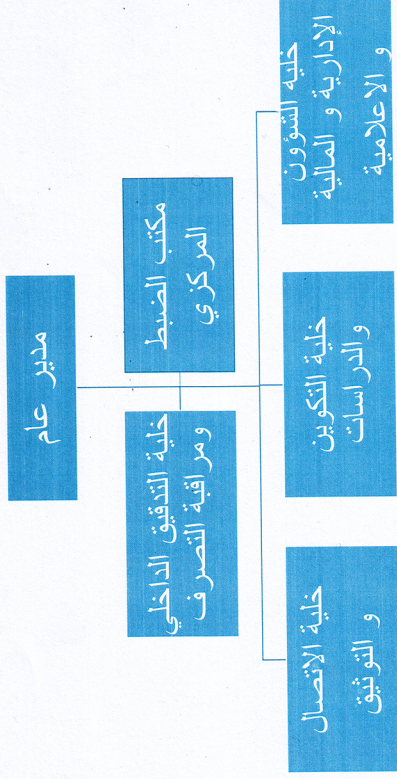 مدير عام
مكتب الضبط
المركزي
خلية التدقيق الداخلي
ومراقبة التصرف
خلية الشؤون
الإدارية و المالية
و الاعلامية
خلية التكوين
والدراسات
خلية الاتصال
و التوثيق